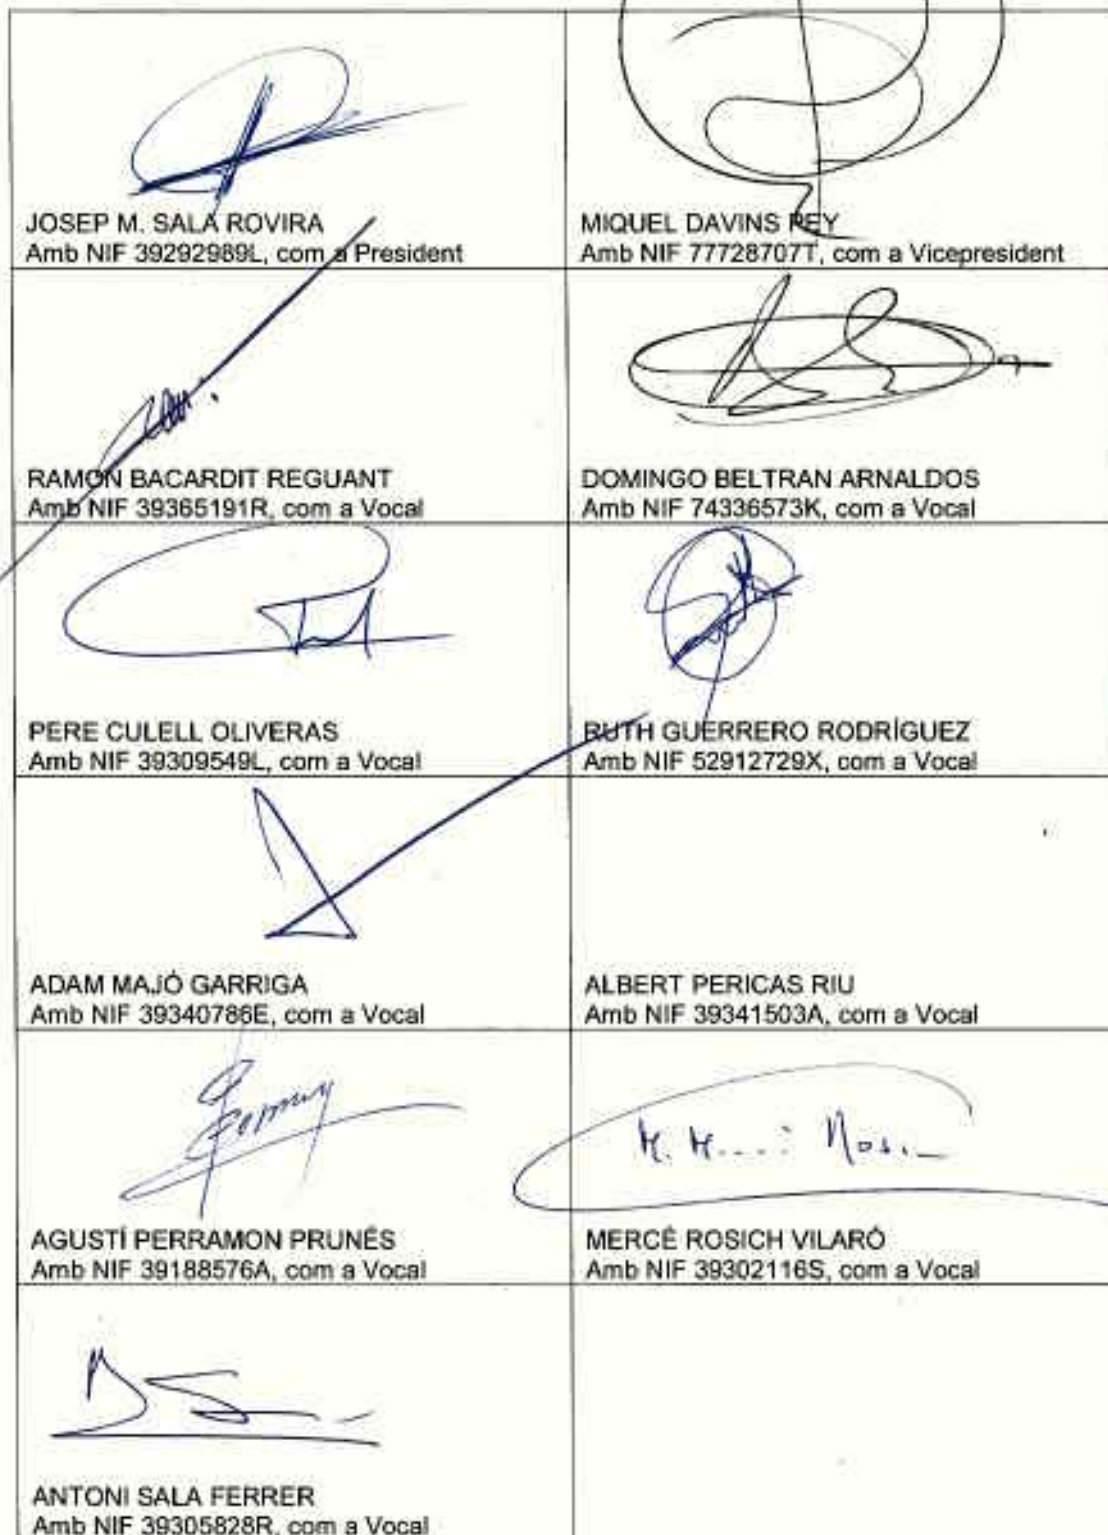 JOSEP M. SALA ROVIRA
Amb NIF 39292989L, com a President
MIQUEL DAVINS PEY
Amb NIF 77728707T, com a Vicepresident
RAMON BACARDIT REGUANT
Amb NIF 39365191R, com a Vocal
DOMINGO BELTRAN ARNALDOS
Amb NIF 74336573K, com a Vocal
PERE CULELL OLIVERAS
Amb NIF 39309549L, com a Vocal
RUTH GUERRERO RODRÍGUEZ
Amb NIF 52912729X, com a Vocal
ADAM MAJÓ GARRIGA
Amb NIF 39340786E, com a Vocal
ALBERT PERICAS RIU
Amb NIF 39341503A, com a Vocal
AGUSTÍ PERRAMON PRUNÉS
Amb NIF 39188576A, com a Vocal
MERCÉ ROSICH VILARÓ
Amb NIF 39302116S, com a Vocal
ANTONI SALA FERRER
Amb NIF 39305828R, com a Vocal